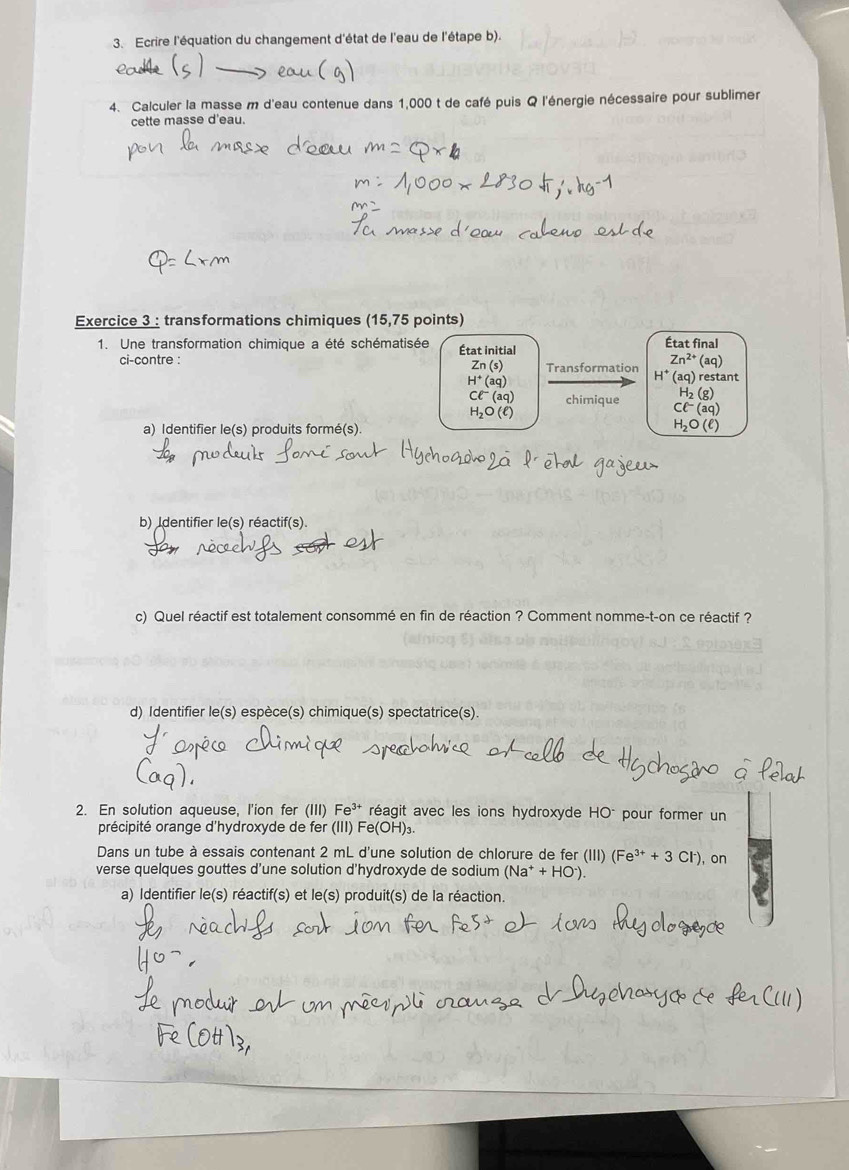 3. Ecrire l'équation du changement d'état de l'eau de l'étape b).
(s) → eau (g)
4. Calculer la masse m d'eau contenue dans 1,000 t de café puis Q l'énergie nécessaire pour sublimer
cette masse d'eau.
la masse d'eau m = Q×
m = 1,000 × 2830 kg-1
m =
la masse d'eau est de
Q = L×m
Exercice 3 : transformations chimiques (15,75 points)
1. Une transformation chimique a été schématisée
ci-contre :
État initial
Zn (s)
H⁺ (aq)
Cℓ⁻ (aq)
H₂O (ℓ)
Transformation
chimique
État final
Zn²⁺ (aq)
H⁺ (aq) restant
H₂ (g)
Cℓ⁻ (aq)
H₂O (ℓ)
a) Identifier le(s) produits formé(s).
produits formé sont à l'état
b) Identifier le(s) réactif(s).
est
c) Quel réactif est totalement consommé en fin de réaction ? Comment nomme-t-on ce réactif ?
d) Identifier le(s) espèce(s) chimique(s) spectatrice(s).
espèce chimique de à l'état
(aq).
2. En solution aqueuse, l'ion fer (III) Fe³⁺ réagit avec les ions hydroxyde HO⁻ pour former un
précipité orange d'hydroxyde de fer (III) Fe(OH)₃.
Dans un tube à essais contenant 2 mL d'une solution de chlorure de fer (III) (Fe³⁺ + 3 Cl⁻), on
verse quelques gouttes d'une solution d'hydroxyde de sodium (Na⁺ + HO⁻).
a) Identifier le(s) réactif(s) et le(s) produit(s) de la réaction.
réactifs sont ion fer et ions
HO⁻.
Le produit est un orange de fer (III)
Fe(OH)₃,